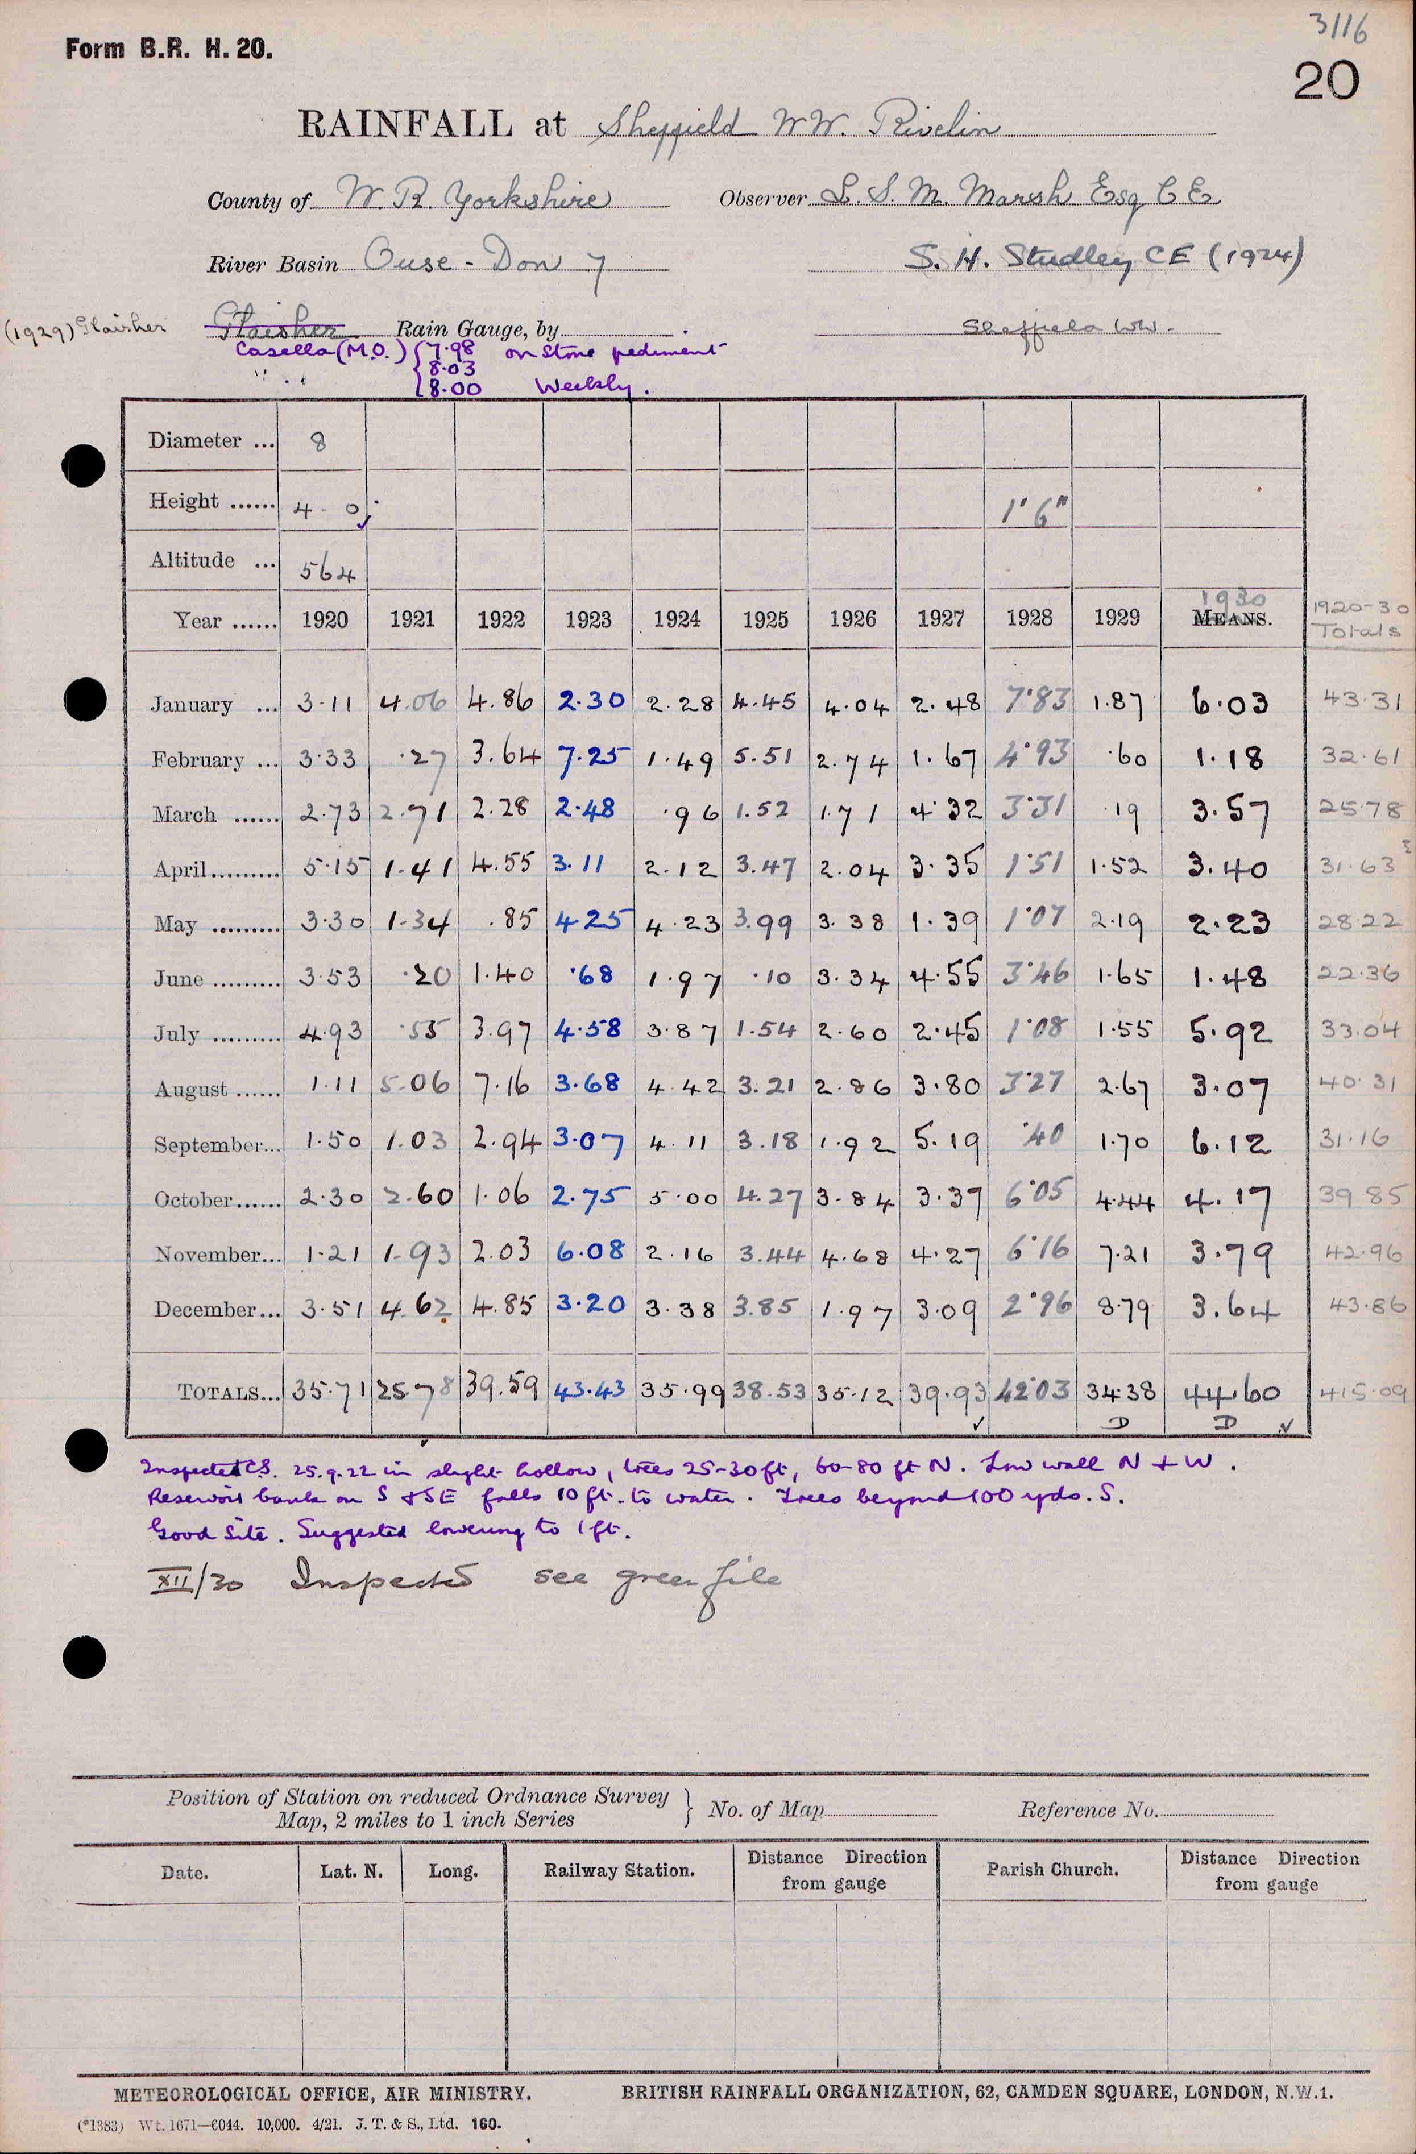 3116
Form B.R. H. 20.
20
RAINFALL at Sheffield W.W. Rivelin
County of W. R. Yorkshire Observer L. S. M. Marsh Esq C E
River Basin Ouse - Don 7 S. H. Studley CE (1924)
(1929) Glaisher Glaisher Rain Gauge, by Sheffield WW.
Casella (M.O.) { 7.98 on stone pediment
8.03
" " 8.00 Weekly.
Diameter ... 8
Height ...... 4 - 0 1' 6"
Altitude ... 564
Year ...... 1920 1921 1922 1923 1924 1925 1926 1927 1928 1929 1930 MEANS. 1920-30 Totals
January ... 3.11 4.06 4.86 2.30 2.28 4.45 4.04 2.48 7.83 1.87 6.03 43.31
February ... 3.33 .27 3.64 7.25 1.49 5.51 2.74 1.67 4.93 .60 1.18 32.61
March ...... 2.73 2.71 2.28 2.48 .96 1.52 1.71 4.32 3.31 .19 3.57 25.78
April ......... 5.15 1.41 4.55 3.11 2.12 3.47 2.04 3.35 1.51 1.52 3.40 31.63
May ......... 3.30 1.34 .85 4.25 4.23 3.99 3.38 1.39 1.07 2.19 2.23 28.22
June ......... 3.53 .20 1.40 .68 1.97 .10 3.34 4.55 3.46 1.65 1.48 22.36
July ......... 4.93 .55 3.97 4.58 3.87 1.54 2.60 2.45 1.08 1.55 5.92 33.04
August ...... 1.11 5.06 7.16 3.68 4.42 3.21 2.86 3.80 3.27 2.67 3.07 40.31
September... 1.50 1.03 2.94 3.07 4.11 3.18 1.92 5.19 .40 1.70 6.12 31.16
October ...... 2.30 2.60 1.06 2.75 5.00 4.27 3.84 3.37 6.05 4.44 4.17 39.85
November... 1.21 1.93 2.03 6.08 2.16 3.44 4.68 4.27 6.16 7.21 3.79 42.96
December... 3.51 4.62 4.85 3.20 3.38 3.85 1.97 3.09 2.96 8.79 3.64 43.86
TOTALS... 35.71 25.78 39.59 43.43 35.99 38.53 35.12 39.93 42.03 34.38 44.60 415.09
D D
Inspected C.S. 25.9.22 in slight hollow, trees 25-30 ft, 60-80 ft N. Low wall N + W.
Reservoir bank on S + SE falls 10 ft. to water. Trees beyond 100 yds. S.
Good Site. Suggested lowering to 1 ft.
XII/30 Inspected see green file
Position of Station on reduced Ordnance Survey
Map, 2 miles to 1 inch Series } No. of Map Reference No.
Date. Lat. N. Long. Railway Station. Distance Direction from gauge Parish Church. Distance Direction from gauge
METEOROLOGICAL OFFICE, AIR MINISTRY. BRITISH RAINFALL ORGANIZATION, 62, CAMDEN SQUARE, LONDON, N.W.1.
(*1383) Wt. 1671—6044. 10,000. 4/21. J. T. & S., Ltd. 160.